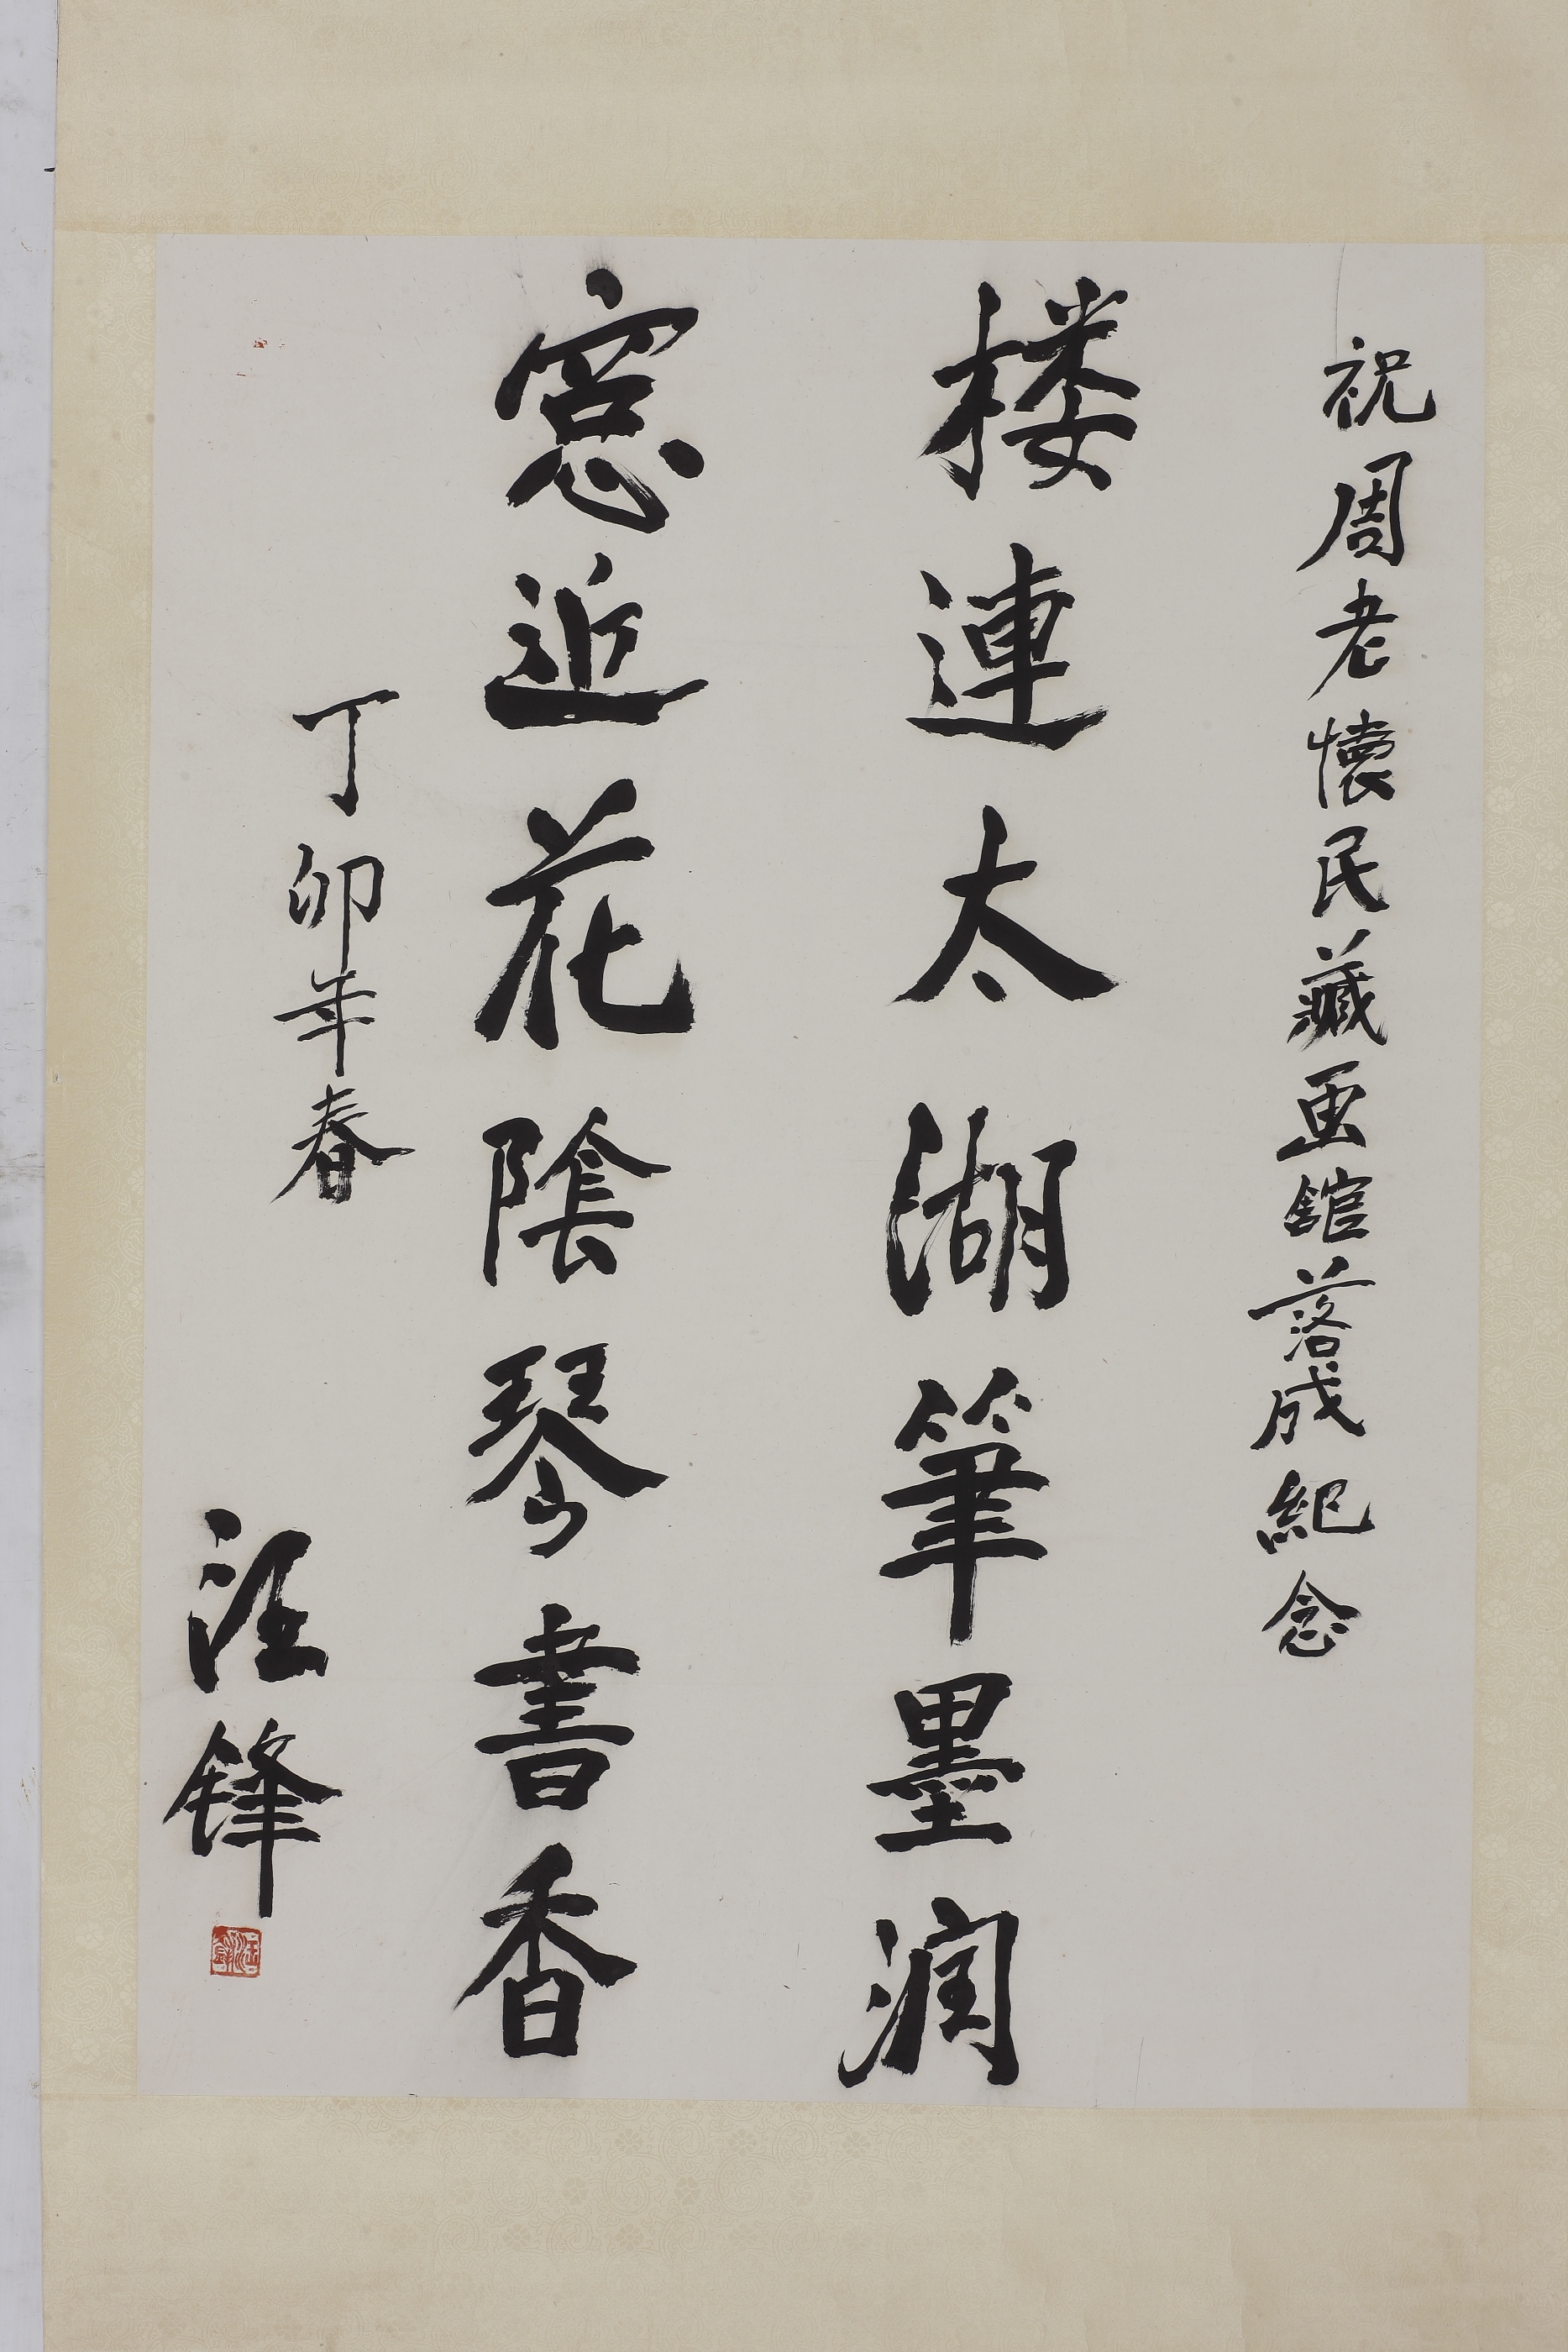 祝周老懷民藏画舘落成紀念
楼連太湖筆墨润
窓近花陰琴書香
丁卯年春
汪锋